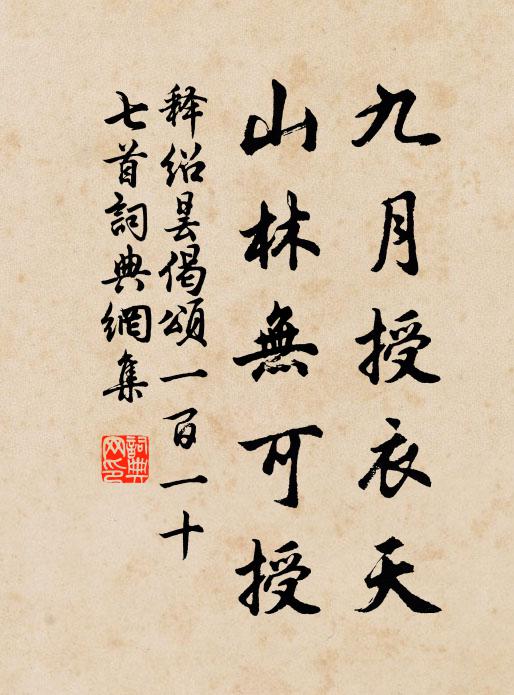 九月授衣天
山林無可授
释绍昙偈頌一百一十
七首詞典網集
詞典
网印